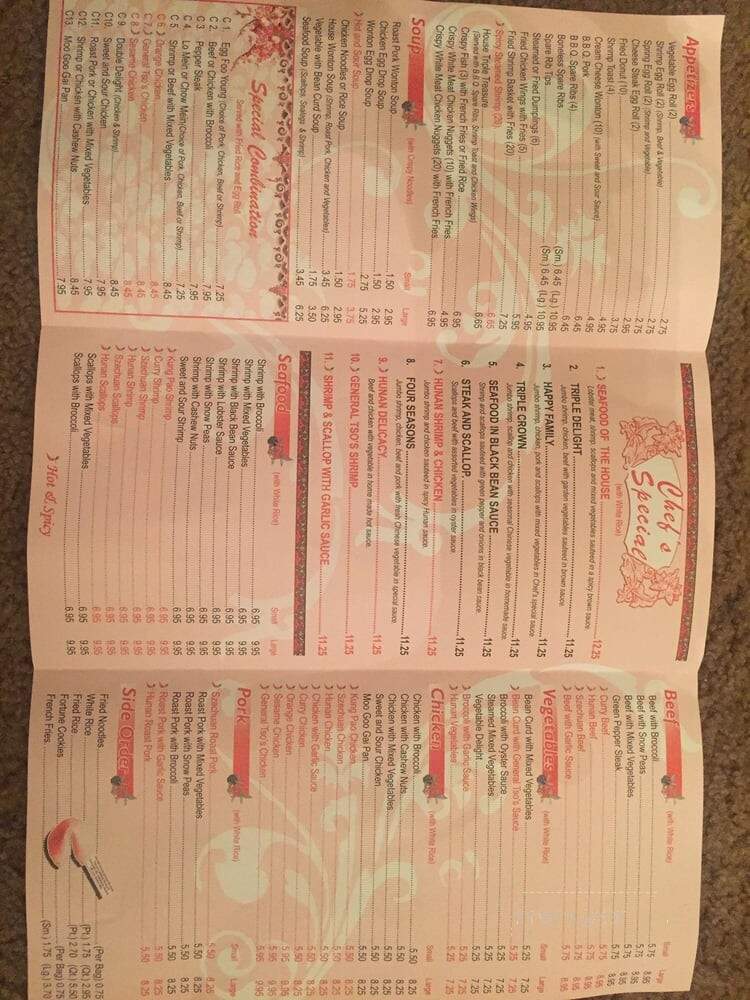 Appetizers
Vegetable Egg Roll (2) 2.75
Shrimp Egg Roll (2) (Shrimp, Beef & Vegetable) 2.75
Spring Egg Roll (2) (Shrimp and Vegetable) 2.75
Cheese Steak Egg Roll (2)
Fried Donut (10)
Shrimp Toast (4) 3.75
Cream Cheese Wonton (10) (with Sweet and Sour Sauce) 4.95
B.B.Q. Pork
B.B.Q. Spare Ribs (4)
Boneless Spare Ribs (Sm.) 6.45 (Lg.) 10.95
Spare Rib Tips (Sm.) 6.45 (Lg.) 10.95
Steamed or Fried Dumplings (6) 4.95
Fried Chicken Wings with Fries (5) 5.95
Fried Shrimp Basket with Fries (20) 7.25
Spicy Steamed Shrimp (20) 6.65
House Triple Treasure
(Served with B.B.Q. Spare Ribs, Shrimp Toast and Chicken Wings)
Crispy Fish (3) with French Fries or Fried Rice 6.95
Crispy White Meat Chicken Nuggets (10) with French Fries 4.95
Crispy White Meat Chicken Nuggets (20) with French Fries 6.95
Soup (with Crispy Noodles)
Small Large
Roast Pork Wonton Soup 1.50 2.95
Chicken Egg Drop Soup 1.50 2.95
Wonton Egg Drop Soup 2.75 5.25
Hot and Sour Soup 1.75 3.75
Chicken Noodles or Rice Soup 1.50 2.95
House Wonton Soup (Shrimp, Roast Pork, Chicken and Vegetables) 3.45 6.25
Vegetable with Bean Curd Soup 1.75 3.50
Seafood Soup (Scallops, Sealegs & Shrimp) 3.45 6.25
Special Combination
Served with Fried Rice and Egg Roll
C 1. Egg Foo Young (Choice of Pork, Chicken, Beef or Shrimp) 7.25
C 2. Beef or Chicken with Broccoli 7.95
C 3. Pepper Steak 7.95
C 4. Lo Mein or Chow Mein (Choice of Pork, Chicken, Beef or Shrimp) 7.25
C 5. Shrimp or Beef with Mixed Vegetables 8.45
C 6. Orange Chicken 8.45
C 7. General Tso's Chicken 8.45
C 8. Sesame Chicken 8.45
C 9. Double Delight (Chicken & Shrimp) 8.45
C10. Sweet and Sour Chicken 7.95
C11. Roast Pork or Chicken with Mixed Vegetables 7.95
C12. Shrimp or Chicken with Cashew Nuts 8.45
C13. Moo Goo Gai Pan 7.95
Chef's Special
(with White Rice)
1. SEAFOOD OF THE HOUSE 12.25
Lobster meat, shrimp, scallops and mixed vegetables sauteed in a spicy brown sauce.
2. TRIPLE DELIGHT 11.25
Jumbo shrimp, chicken, beef with garden vegetables sauteed in brown sauce.
3. HAPPY FAMILY 11.25
Jumbo shrimp, chicken, pork and scallops with mixed vegetables in Chef's special sauce.
4. TRIPLE CROWN 11.25
Jumbo shrimp, scallop and chicken with seasonal Chinese vegetable in homemade sauce.
5. SEAFOOD IN BLACK BEAN SAUCE 11.25
Shrimp and scallops sauteed with green pepper and onions in black bean sauce.
6. STEAK AND SCALLOP 11.25
Scallops and beef with assorted vegetables in oyster sauce.
7. HUNAN SHRIMP & CHICKEN 11.25
Jumbo shrimp and chicken sauteed in spicy Hunan sauce.
8. FOUR SEASONS 11.25
Jumbo shrimp, chicken, beef and pork with fresh Chinese vegetable in special sauce.
9. HUNAN DELICACY 11.25
Beef and chicken with vegetable in home made hot sauce.
10. GENERAL TSO'S SHRIMP 11.25
11. SHRIMP & SCALLOP WITH GARLIC SAUCE 11.25
Seafood (with White Rice)
Small Large
Shrimp with Broccoli 6.95 9.95
Shrimp with Mixed Vegetables 6.95 9.95
Shrimp with Black Bean Sauce 6.95 9.95
Shrimp with Lobster Sauce 6.95 9.95
Shrimp with Snow Peas 6.95 9.95
Shrimp with Cashew Nuts 6.95 9.95
Sweet and Sour Shrimp 6.95 9.95
Kung Pao Shrimp 6.95 9.95
Curry Shrimp 6.95 9.95
Szechuan Shrimp 6.95 9.95
Hunan Shrimp 6.95 9.95
Szechuan Scallops 6.95 9.95
Hunan Scallops 6.95 9.95
Scallops with Mixed Vegetables 6.95 9.95
Scallops with Broccoli 6.95 9.95
Hot & Spicy
Beef (with White Rice)
Small Large
Beef with Broccoli 5.75 8.95
Beef with Snow Peas 5.75 8.95
Beef with Mixed Vegetables 5.75 8.95
Green Pepper Steak 5.75 8.95
Curry Beef 5.75 8.95
Hunan Beef 5.75 8.95
Szechuan Beef 5.75 8.95
Beef with Garlic Sauce 5.75 8.95
Vegetables (with White Rice)
Small Large
Bean Curd with Mixed Vegetables 5.25 7.25
Bean Curd with General Tso's Sauce 5.25 7.25
Broccoli with Oyster Sauce 5.25 7.25
Steamed Mixed Vegetables 5.25 7.25
Vegetable Delight 5.25 7.25
Broccoli with Garlic Sauce 5.25 7.25
Hunan Vegetables 5.25 7.25
Chicken (with White Rice)
Small Large
Chicken with Broccoli 5.50 8.25
Chicken with Cashew Nuts 5.50 8.25
Chicken with Mixed Vegetables 5.50 8.25
Sweet and Sour Chicken 5.50 8.25
Moo Goo Gai Pan 5.50 8.25
Kung Pao Chicken 5.50 8.25
Szechuan Chicken 5.50 8.25
Hunan Chicken 5.50 8.25
Chicken with Garlic Sauce 5.50 8.25
Curry Chicken 5.50 8.25
Orange Chicken 5.95 9.95
Sesame Chicken 5.95 9.95
General Tso's Chicken 5.95 9.95
Pork (with White Rice)
Small Large
Szechuan Roast Pork 5.50 8.25
Roast Pork with Mixed Vegetables 5.50 8.25
Roast Pork with Snow Peas 5.50 8.25
Roast Pork with Broccoli 5.50 8.25
Roast Pork with Garlic Sauce 5.50 8.25
Hunan Roast Pork 5.50 8.25
Side Order
Fried Noodles (Per Bag) 0.75
White Rice (Pt.) 1.75 (Qt.) 2.95
Fried Rice (Pt.) 2.70 (Qt.) 5.50
Fortune Cookies (Per Bag) 0.75
French Fries (Sm.) 1.75 (Lg.) 3.70